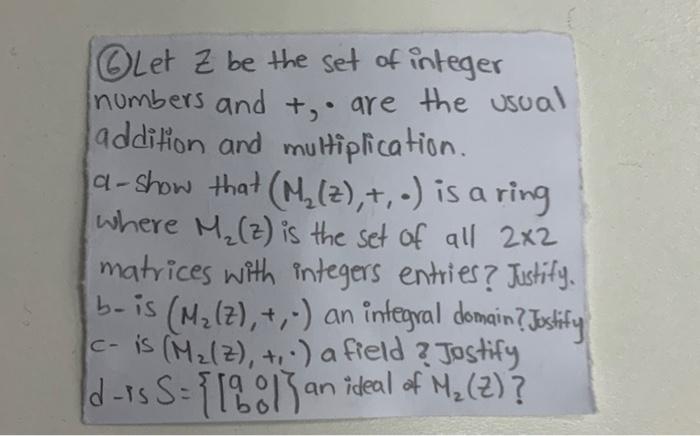 ⑥Let Z be the set of integer
numbers and +, · are the usual
addition and multiplication.
a- Show that (M₂(Z), +, ·) is a ring
where M₂(Z) is the set of all 2×2
matrices with integers entries? Justify.
b- is (M₂(Z), +, ·) an integral domain? Justify
c- is (M₂(Z), +, ·) a field? Justify
d - is S = {[a 0; b 0]} an ideal of M₂(Z)?